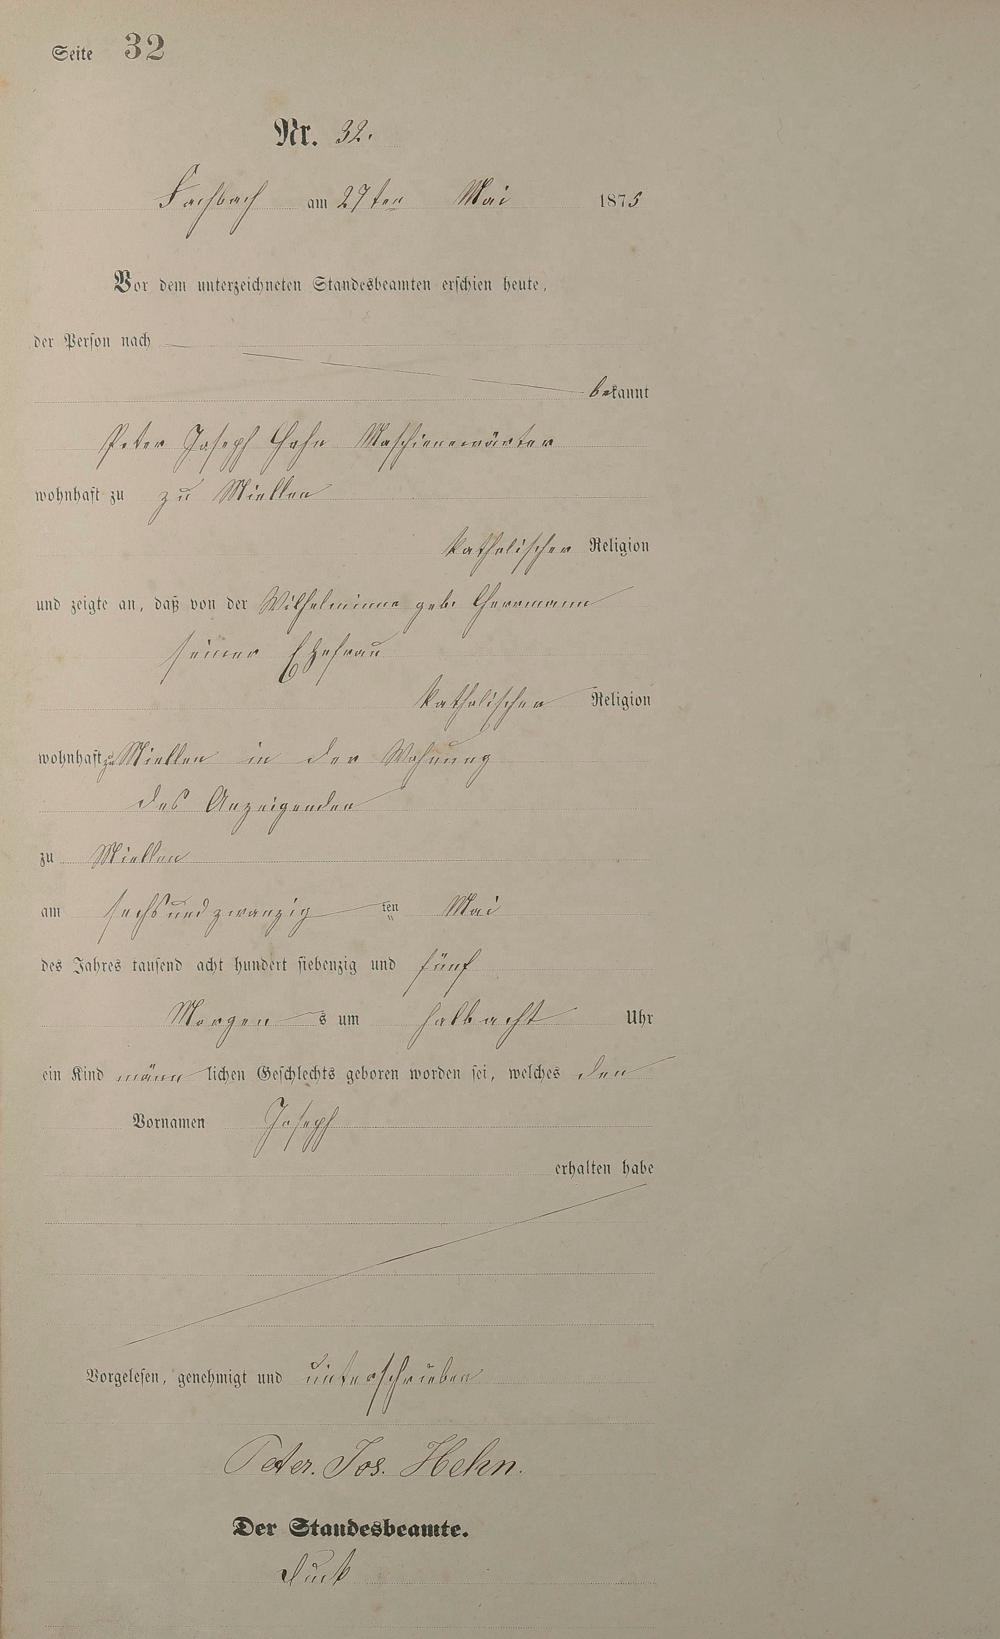 Seite 32
Nr. 32.
Fachbach am 27ten Mai 1875
Vor dem unterzeichneten Standesbeamten erschien heute,
der Person nach
bekannt
Peter Joseph Hehn Maschienewärter
wohnhaft zu zu Miellen
katholischer Religion
und zeigte an, daß von der Wilhelminna geb. Herrmann
seiner Ehefrau
katholischer Religion
wohnhaft zu Miellen in der Wohnung
des Anzeigenden
zu Miellen
am sechsundzwanzig ten Mai
des Jahres tausend acht hundert siebenzig und fünf
Morgen s um halb acht Uhr
ein Kind männ lichen Geschlechts geboren worden sei, welches den
Vornamen Joseph
erhalten habe
Vorgelesen, genehmigt und unterschrieben
Peter. Jos. Hehn.
Der Standesbeamte.